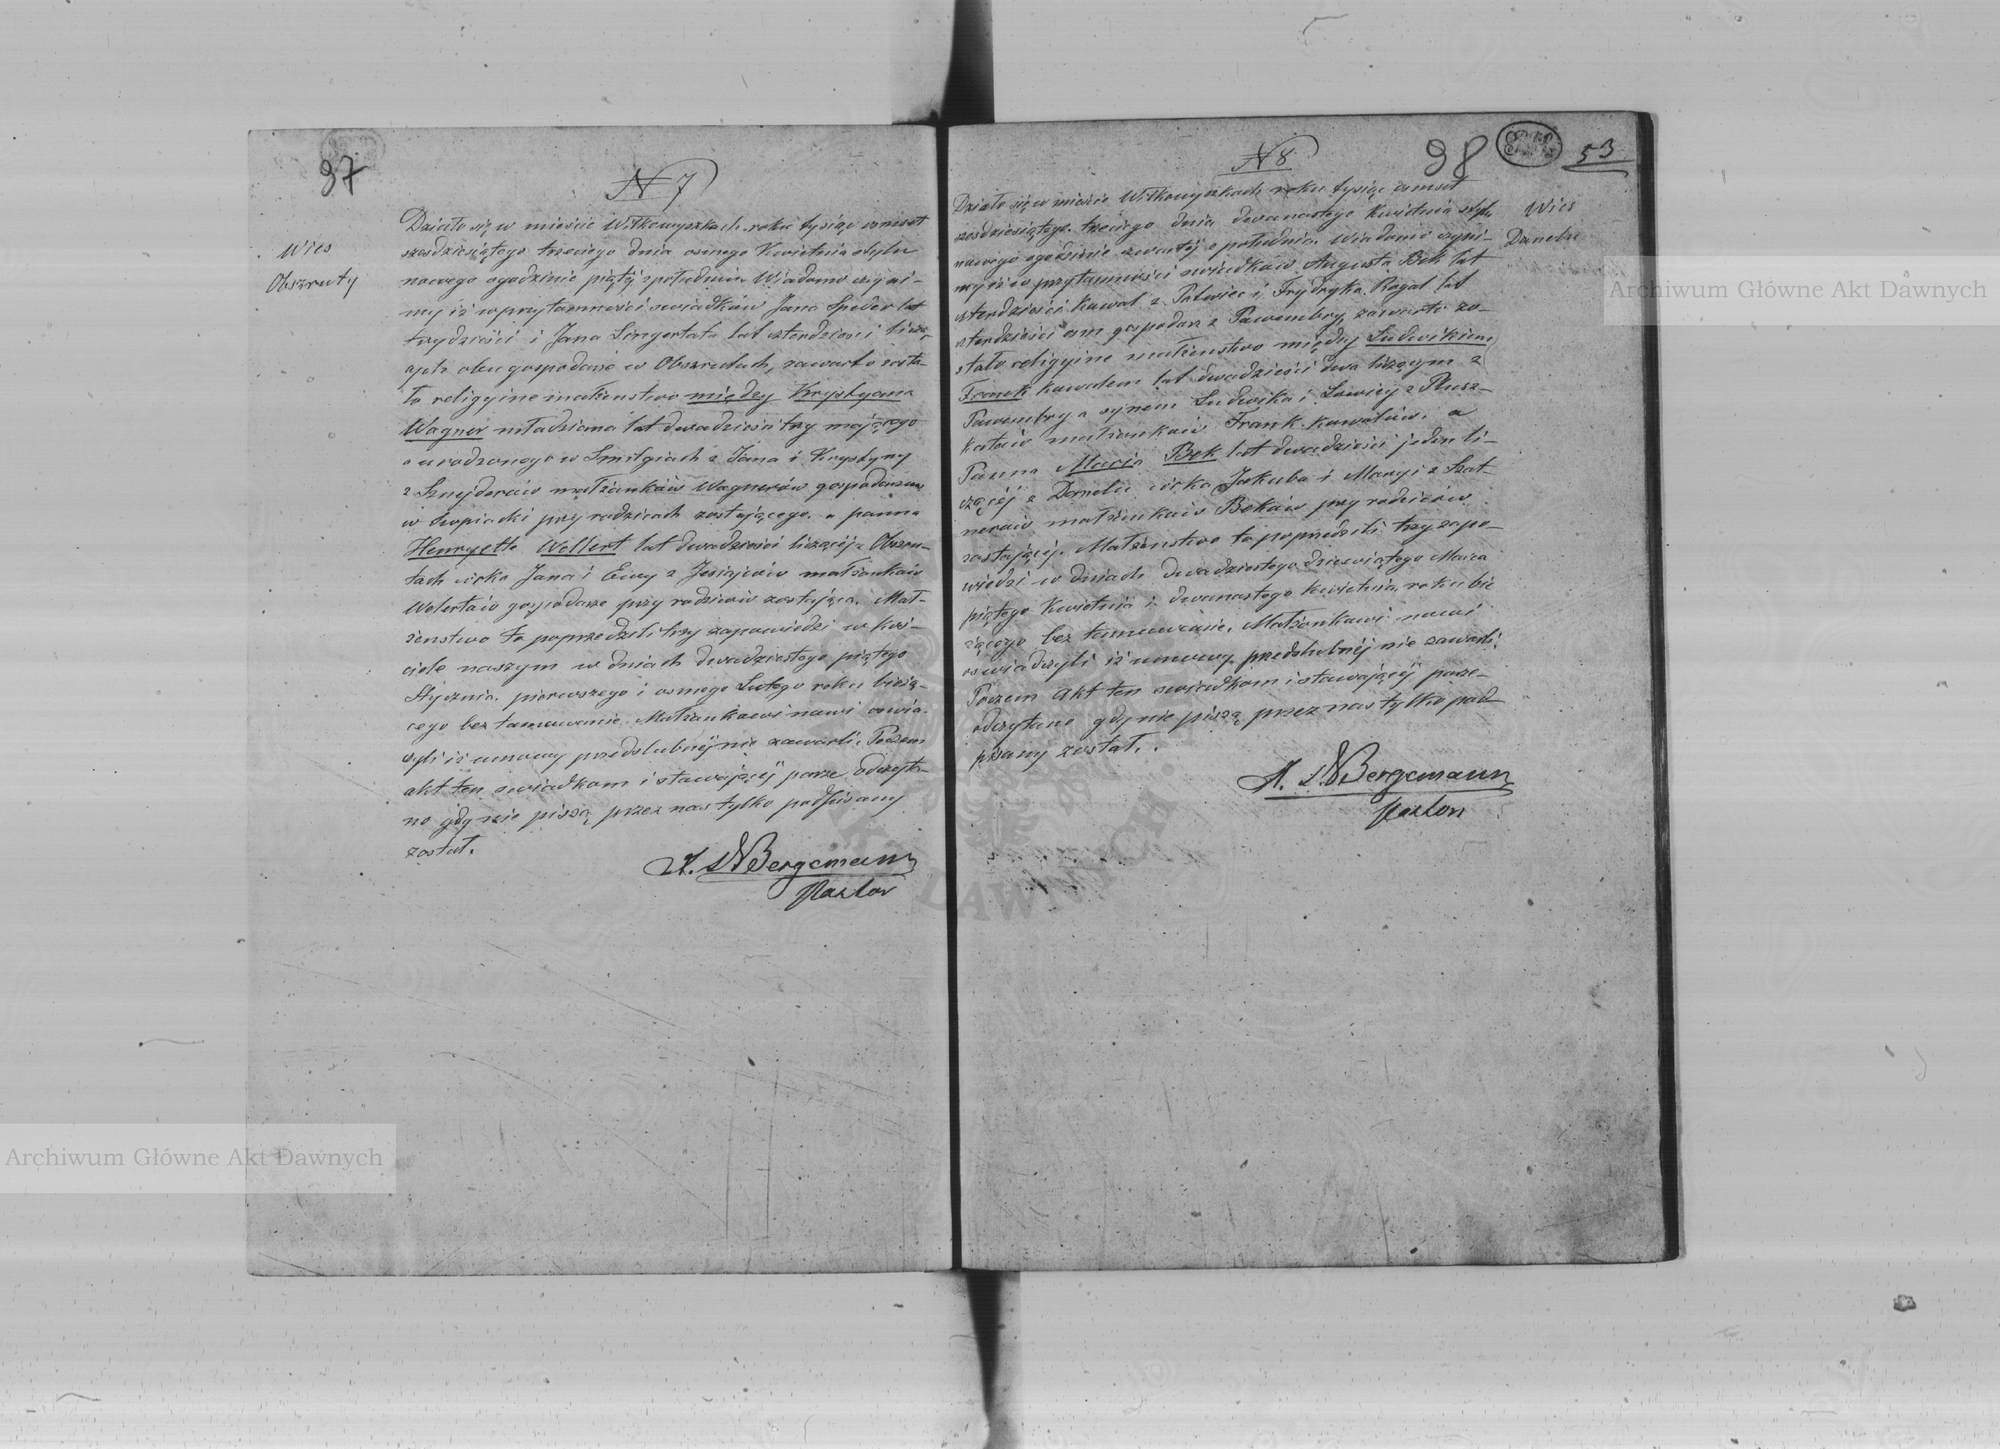 97
N 7
Wies
Obszruty
Działo się w mieście Wiłkowyszkach roku tysiąc osmset
szesdziesiątego trzeciego dnia osmego Kwietnia stylu
nowego ogodzinie piątej popołudniu Wiadomo czyni-
my iż w przytomności swiadków Jana Speder lat
trzydzieści i Jana Singertata lat czterdzieści liczą-
cych obu gospodarze w Obszrutach, zawarto zosta-
ło religijne małżenstwo między Krystyana
Wagner młodziana lat dwadzieścia trzy mającego
a urodzonego w Smilgiach z Jana i Krystyny
z Sznejderów małżonków Wagnerów gospodarzów
w przy rodzicach zostającego. a panna
Henryetta Wellert lat dwadzieści liczącej z Obszru-
tach córka Jana i Ewy z małżonków
Welertów gospodarze przy rodziców zostająca. Mał-
żenstwo to poprzedzili trzy zapowiedzi w koś-
ciele naszym w dniach dwudziestego piątego
Stycznia, pierwszego i osmego Lutego roku bieżą-
cego bez tamowanie. Małżonkowi nowi oswia-
czyli iż umowy przedslubnej nie zawarli. Poczem
akt ten swiadkom i stawającej parze odczyta-
no gdy nie piszą przez nas tylko podpisany
został.
A. Bergemann
Pastor
98
53
N 8
Wies
Działo się w mieście Wiłkowyszkach roku tysiąc osmset
szesdziesiątego trzeciego dnia dwunastego Kwietnia stylu
nowego ogodzinie czwartej popołudniu Wiadomo czyni-
my iż w przytomności swiadków Augusta Bek lat
czterdzieści kowal z i Frydryka Rogal lat
czterdzieści osm gospodarz z Pawembry, zawarto zo-
stało religijne małżenstwo między Ludwikiem
Frank kawalem lat dwadzieści dwa liczącym z
Pawembry a synem Ludwika i z Plusz-
małżonków Frank kowalów. a
Panna Maria Bek lat dwadzieści jeden li-
czącej z córka Jakuba i Maryi z Szat-
nerów małżonków Beków przy rodziców
zostającej. Małżenstwo to poprzedzili trzy zapo-
wiedzi w dniach dwudziestego dziewiątego Marca
piątego Kwietnia i dwunastego Kwietnia roku bie
żącego bez tamowanie. Małżonkowi nowi
oswiadczyli iż umowy przedslubnej nie zawarli.
Poczem akt ten swiadkom i stawającej parze
odczytano gdy nie piszą przez nas tylko pod
pisany został.
A. Bergemann
Pastor
Archiwum Główne Akt Dawnych
Archiwum Główne Akt Dawnych
DAWNYCH